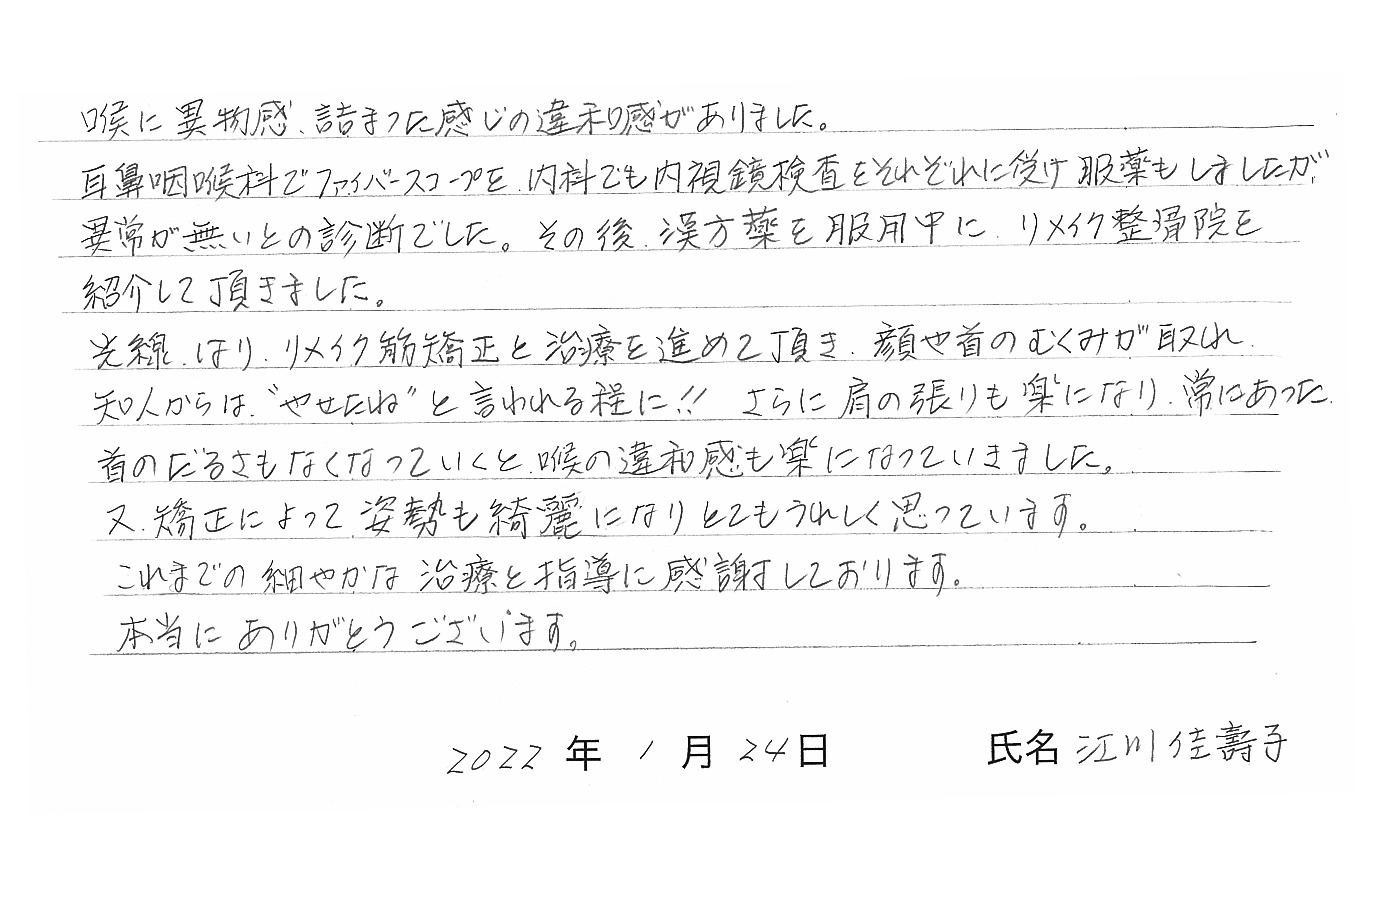 喉に異物感、詰まった感じの違和感がありました。
耳鼻咽喉科でファイバースコープを、内科でも内視鏡検査をそれぞれに受け服薬もしましたが、
異常が無いとの診断でした。その後、漢方薬を服用中に、リメイク整骨院を
紹介して頂きました。
光線、はり、リメイク筋矯正と治療を進めて頂き、顔や首のむくみが取れ、
知人からは、"やせたね"と言われる程に!! さらに肩の張りも楽になり、常にあった、
首のだるさもなくなっていくと、喉の違和感も楽になっていきました。
又、矯正によって姿勢も綺麗になりとてもうれしく思っています。
これまでの細やかな治療と指導に感謝しております。
本当にありがとうございます。
2022年1月24日 氏名 江川佳壽子